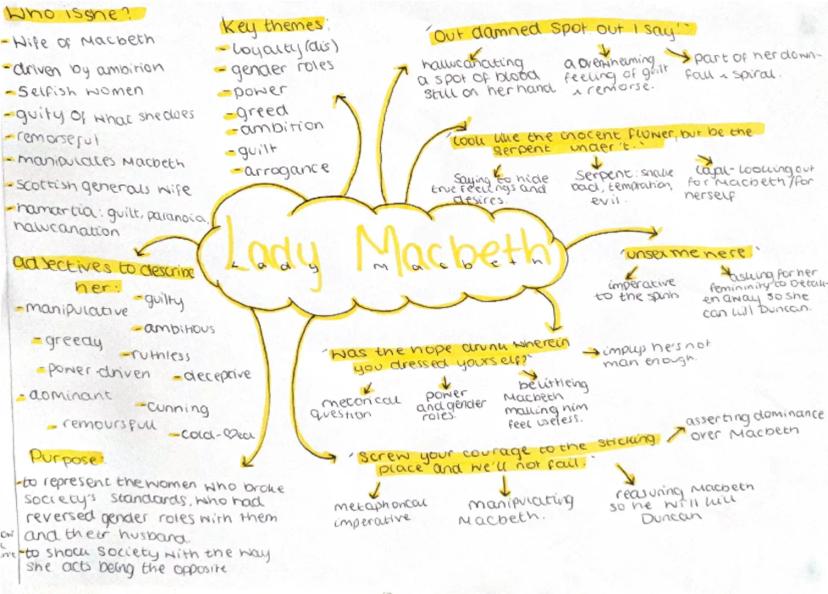 Who is she?
- Wife of Macbeth
- driven by ambition
- Selfish women
- guilty of what she does
- remorseful
- manipulates Macbeth
- Scottish generals wife
- hamartia: guilt, paranoia,
halucanation
adjectives to describe
her:
- manipulative
- guilty
- ambitious
- greedy
- ruthless
- power-driven
- deceptive
- dominant
- cunning
- remoursfull
- cold-
Purpose:
- to represent the women who broke
society's standards, who had
reversed gender roles with them
and their husband.
- to shock society with the way
she acts being the opposite
Key themes:
- Loyalty (dis)
- gender roles
- power
- greed
- ambition
- guilt
- arrogance
Lady Macbeth
Lady Macbeth
"Out damned spot out I say!"
hallucanating
a spot of blood
still on her hand
a overwheming
feeling of guilt
& remorse.
part of her down-
fall & spiral.
"Look like the inocent flower, but be the
serpent under 't."
Saying to hide
true feelings and
desires.
Serpent: snake
bad, temptation,
evil.
looking out
for Macbeth/for
herself
"unsex me here"
imperative
to the
asking for her
femininity to be tak-
en away so she
can kill Duncan.
"Was the hope drunk wherein
you dressed yourself?"
implys he's not
man enough.
rhetorical
question
power
and gender
roles.
belittleing
Macbeth
making him
feel useless.
"Screw your courage to the sticking
place and we'll not fail."
asserting dominance
over Macbeth
metaphorical
imperative
manipulating
Macbeth.
reasuring Macbeth
so he will kill
Duncan